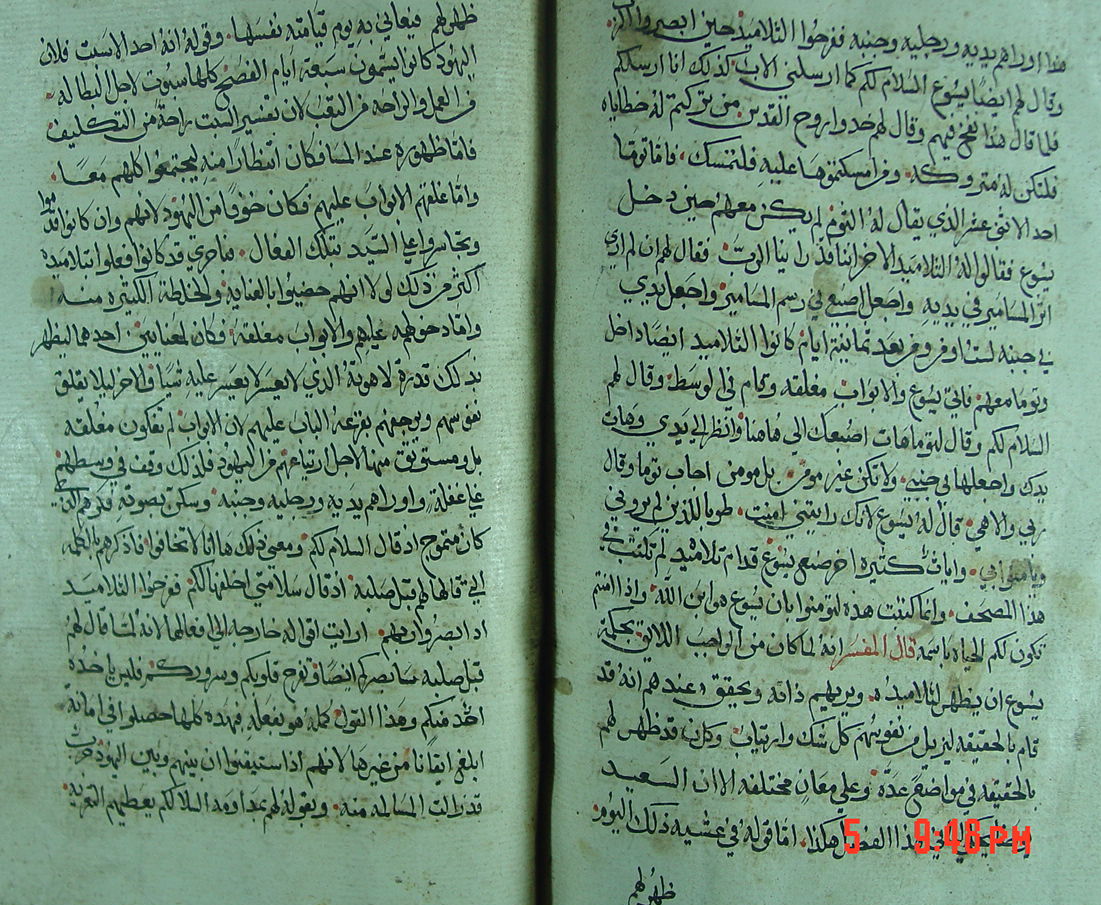 هذا اوراهم يديه ورجليه وجنبه ففرحوا التلاميذ حين ابصروا الرب
وقال لهم ايضا يسوع السلام لكم كما ارسلني الاب كذلك انا ارسلكم
فلما قال هذا نفخ فيهم وقال لهم خدوا روح القدس من تركتم له خطاياه
فلتكن له متروكه ومن امسكتموها عليه فلتمسك فاما توما
احد الاثنى عشر الذي يقال له التوم لم يكن معهم حين دخل
يسوع فقالوا له التلاميد الاخر اننا قد راينا الرب فقال لهم ان لم اري
اثر المسامير في يديه واضع اصبعي في رسم المسامير واجعل يدي
في جنبه لست اومن ومن بعد تمانية ايام كانوا التلاميد ايضا داخل
وتوما معهم فاتي يسوع والابواب مغلقه وقام في الوسط وقال لهم
السلام لكم وقال لتوما هات اصبعك الي هاهنا وانظر الي يدي وهات
يدك واجعلها في جنبي ولا تكن غير مومن بل مومن اجاب توما وقال
ربي والاهي قال له يسوع لانك رايتني امنت طوبا للذين لم يروني
ويامنوا بي وايات كتيره اخر صنع يسوع قدام تلاميد لم تكتب في
هذا المصحف وانما كتبت هده لتومنوا بان يسوع هو ابن الله واذا امنتم
تكون لكم الحياه باسمه قال المفسر انه لما كان من الواجب اللايق بحكمة
يسوع ان يظهر لتلاميده ويريهم ذاته ويحقق عندهم انه قد
قام بالحقيقه ليزيل من نفوسهم كل شك وارتياب وكان قد ظهر لهم
بالحقيقه في مواضع عدة وعلي معان مختلفه الا ان السعيد
في هذا الفصل هكذا اما قوله في عشيه ذلك اليوم
ظهر لهم
5 9:48 PM
ظهر لهم فيعاني به يوم قيامته نفسها وقوله انه احد الاسبت فلان
اليهود كانوا يسمون سبعة ايام الفصح كلها سبوت لاجل البطاله
من العمل والراحه من التعب لان تفسير السبت راحة من التكليف
فاما ظهوره عند المسا فكان انتظارا منه ليجتمعوا كلهم معا
واما غلقهم الابواب عليهم فكان خوفا من اليهود لانهم وان كانوا قد
وتجاسروا علي السيد بتلك الفعال فاحري قد كانوا فعلوا بتلاميده
اكثر من ذلك لولا انهم حضيوا بالعنايه والحفظة الكتيره منه
واما دخوله عليهم والابواب مغلقة فكان لمعنايين احدهما ليظهر
بدلك قدرة لاهوته الذي لا يعسر عليه شيا والاخر ليلا يقلق
نفوسهم ويرجفهم بقرعة الباب عليهم لان الابواب لم تكون مغلقه
بل ومستوتق منها لاجل ارتياعهم من اليهود فلذلك وقف في وسطهم
علي غفلة واوراهم يديه ورجليه وجنبه وسكن بصوته فكرهم الذي
كان متموج اذ قال السلام لكم ومعني ذلك ها انا لا تخافوا فاذكرهم بالكلمه
التي قالها لهم قبل صلبه اذ قال سلامتي اخلفها لكم فرحوا التلاميد
اذ ابصروا ربهم ارايت اقواله خارجه الي فعالها لانه لما قال لهم
قبل صلبه سابصركم ايضا وتفرح قلوبكم وسروركم فليس ياخده
احد منكم وهدا القول كمله هو بفعله فهده كلها حصلوا في امانة
ابلغ ايقانا من غيرها لانهم اذا ستيقنوا ان بينهم وبين اليهود حرب
قد زالت المسالمه منه وبقوله لهم بمداومة السلام لكم يعطيهم التعزيه